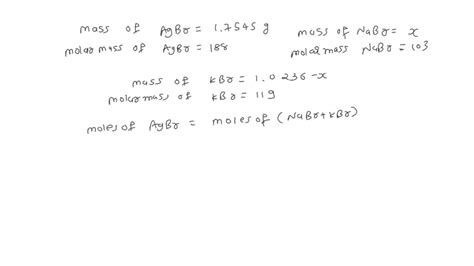 mass of AgBr = 1.7545 g
mass of NaBr = x
molar mass of AgBr = 188
molar mass NaBr = 103
mass of KBr = 1.0236-x
molar mass of KBr = 119
moles of AgBr = moles of (NaBr+KBr)